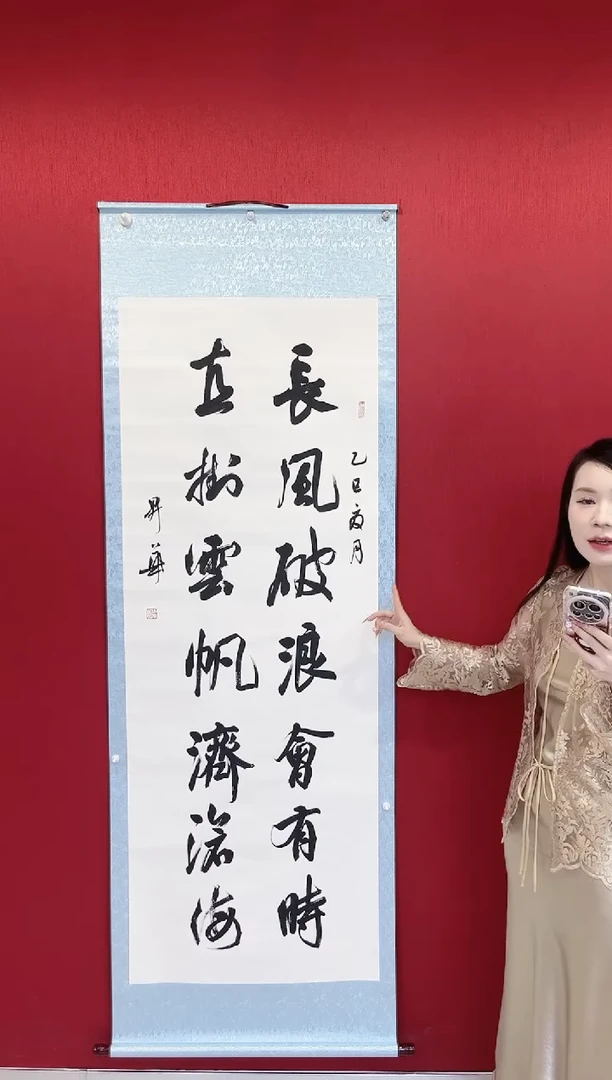 乙巳
月
長風破浪會有時
直掛雲帆濟滄海
昇華